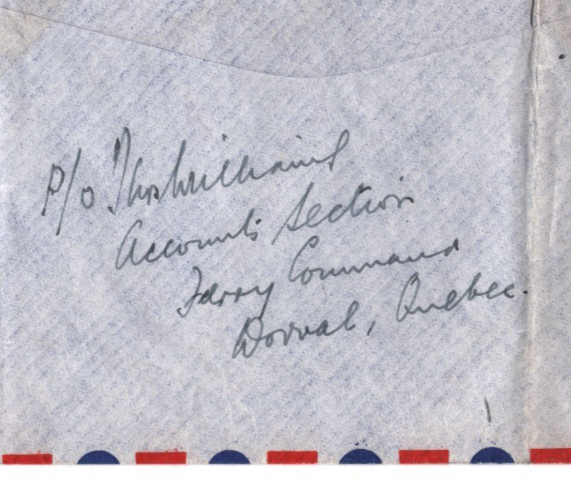 P/O Thos Williams
Accounts Section
Ferry Command
Dorval, Quebec.